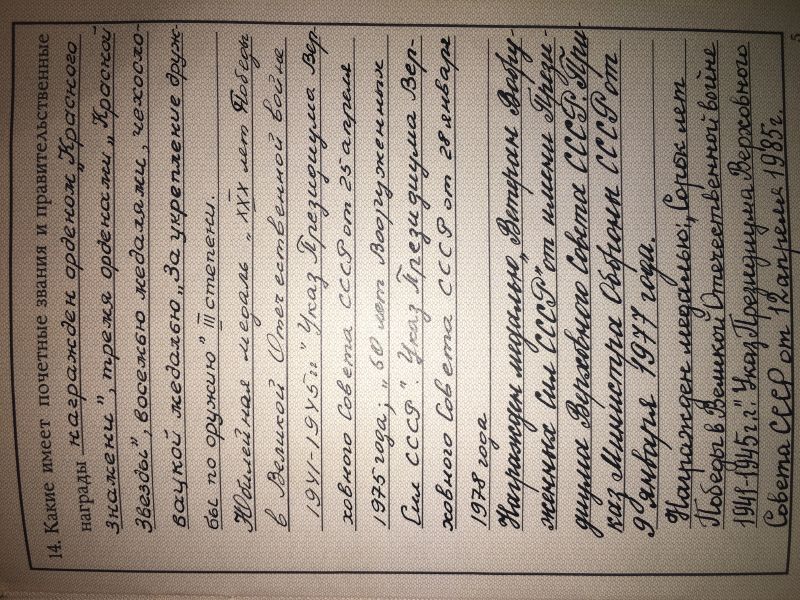 14. Какие имеет почетные звания и правительственные
награды награжден орденом „Красного
Знамени", тремя орденами „Красной
Звезды", восемью медалями, чехосло-
вацкой медалью „За укрепление друж-
бы по оружию" III степени.
Юбилейная медаль „XXX лет Победы
в Великой Отечественной войне
1941-1945 гг" Указ Президиума Вер-
ховного Совета СССР от 25 апреля
1975 года; „60 лет Вооруженных
Сил СССР". Указ Президиума Вер-
ховного Совета СССР от 28 января
1978 года
Награжден медалью „Ветеран Воору-
женных Сил СССР" от имени Прези-
диума Верховного Совета СССР. При-
каз Министра Обороны СССР от
9 января 1977 года.
Награжден медалью: „Сорок лет
Победы в Великой Отечественной войне
1941-1945 г.г." Указ Президиума Верховного
Совета СССР от 12 апреля 1985г.
5